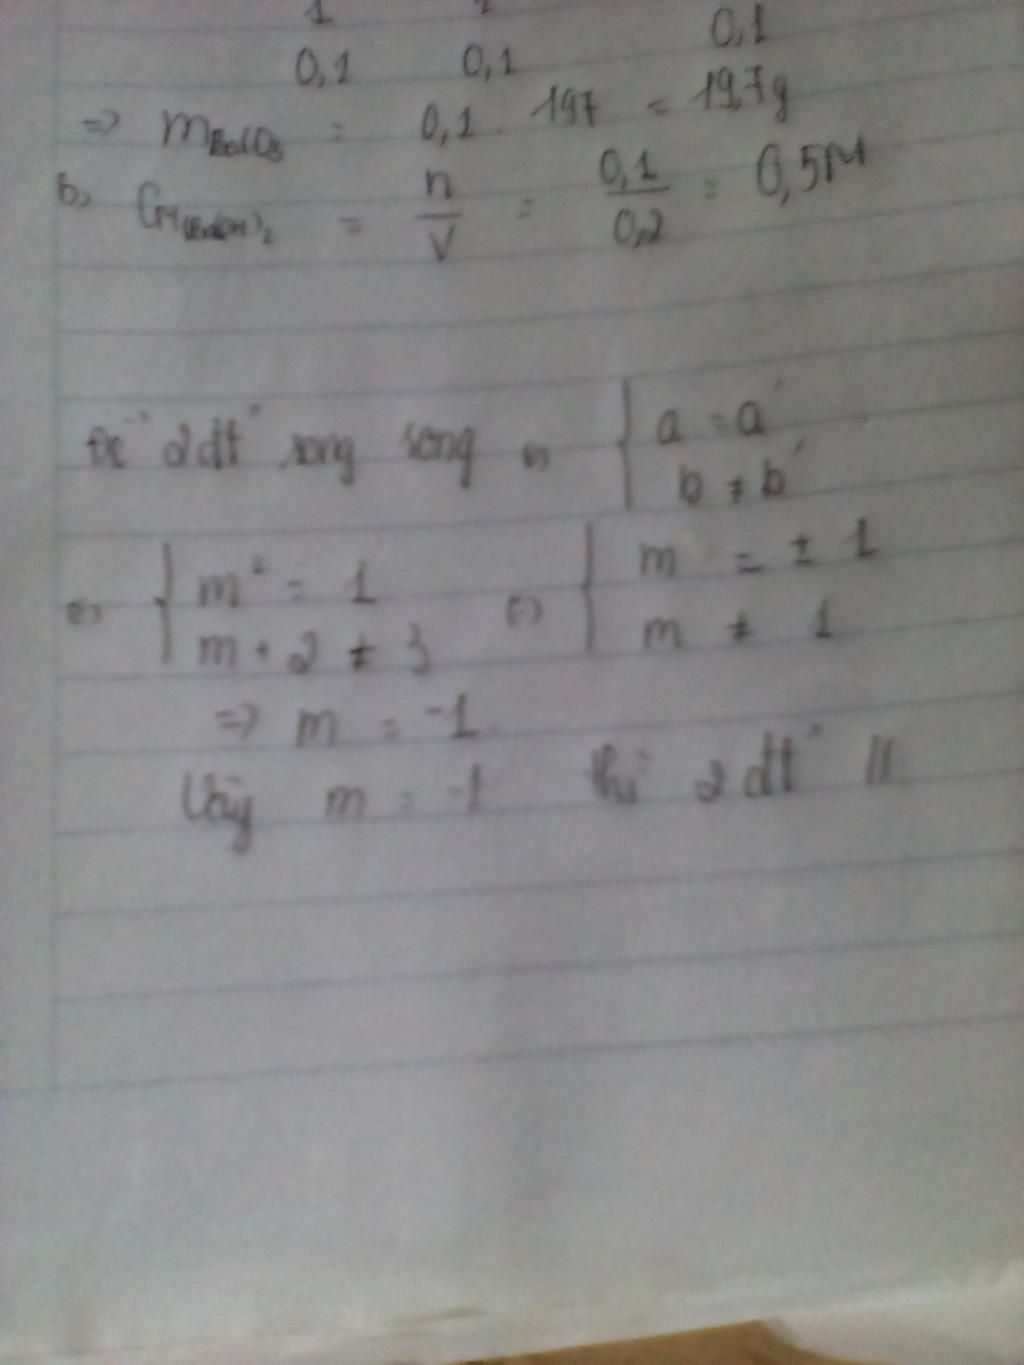 1 2
0,1 0,1 0,1
=> mBaCO3 = 0,1 . 197 = 19,7g
b, CM(Ba(OH)2 = n/V = 0,1/0,2 = 0,5M
Để 2 đt song song <=> { a = a'
b ≠ b'
<=> { m² = 1 <=> { m = ± 1
m + 2 ≠ 3 m ≠ 1
=> m = -1.
Vậy m = -1 thì 2 đt //